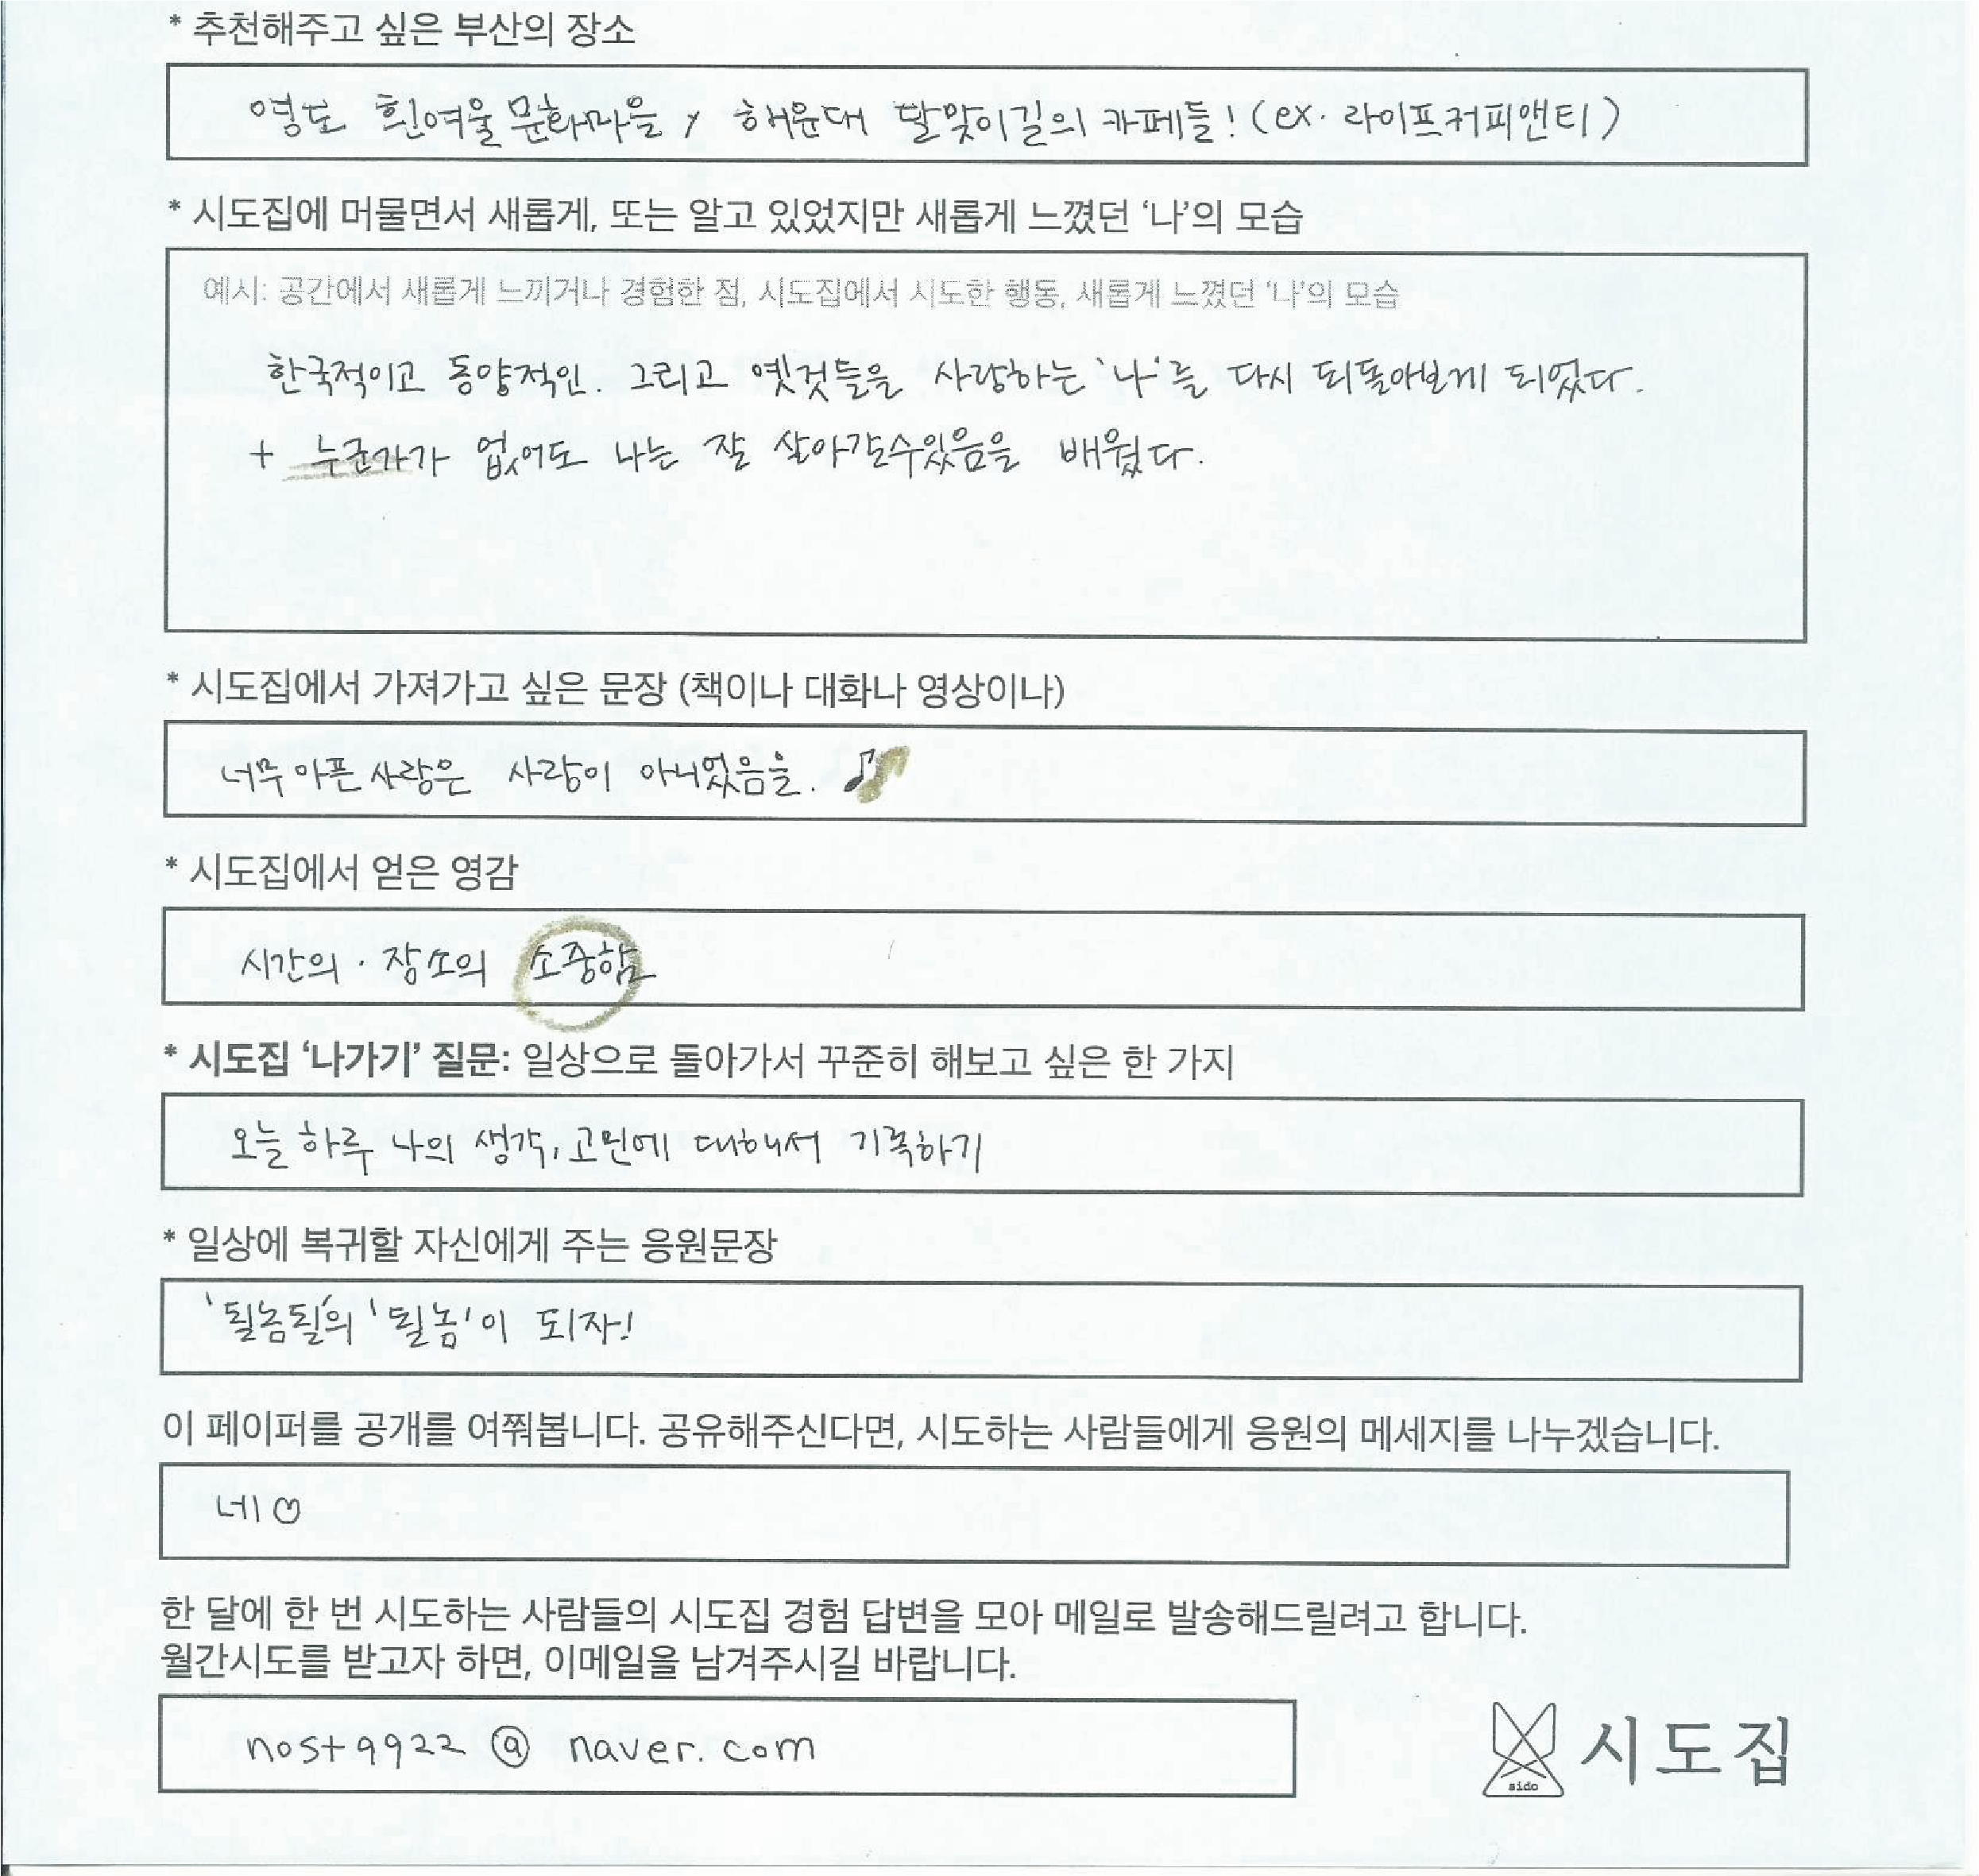 * 추천해주고 싶은 부산의 장소
영도 흰여울문화마을, 해운대 달맞이길의 카페들! (ex. 라이프커피앤티)
* 시도집에 머물면서 새롭게, 또는 알고 있었지만 새롭게 느꼈던 ‘나’의 모습
예시: 공간에서 새롭게 느끼거나 경험한 점, 시도집에서 시도한 행동, 새롭게 느꼈던 ‘나’의 모습
한국적이고 동양적인. 그리고 옛것들을 사랑하는 '나'를 다시 되돌아보게 되었다.
+ 누군가가 없어도 나는 잘 살아갈수있음을 배웠다.
* 시도집에서 가져가고 싶은 문장 (책이나 대화나 영상이나)
너무 아픈 사랑은 사랑이 아니었음을. ♪♪
* 시도집에서 얻은 영감
시간의 · 장소의 소중함
* 시도집 ‘나가기’ 질문: 일상으로 돌아가서 꾸준히 해보고 싶은 한 가지
오늘 하루 나의 생각, 고민에 대해서 기록하기
* 일상에 복귀할 자신에게 주는 응원문장
'될놈될'의 '될놈'이 되자!
이 페이퍼를 공개를 여쭤봅니다. 공유해주신다면, 시도하는 사람들에게 응원의 메세지를 나누겠습니다.
네♡
한 달에 한 번 시도하는 사람들의 시도집 경험 답변을 모아 메일로 발송해드릴려고 합니다.
월간시도를 받고자 하면, 이메일을 남겨주시길 바랍니다.
nost9922@naver.com
sido 시도집